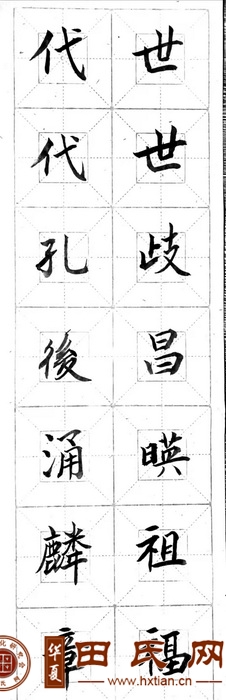 世世歧昌暎祖福
代代孔後涌麟
华夏
田氏网
www.hxtian.cn